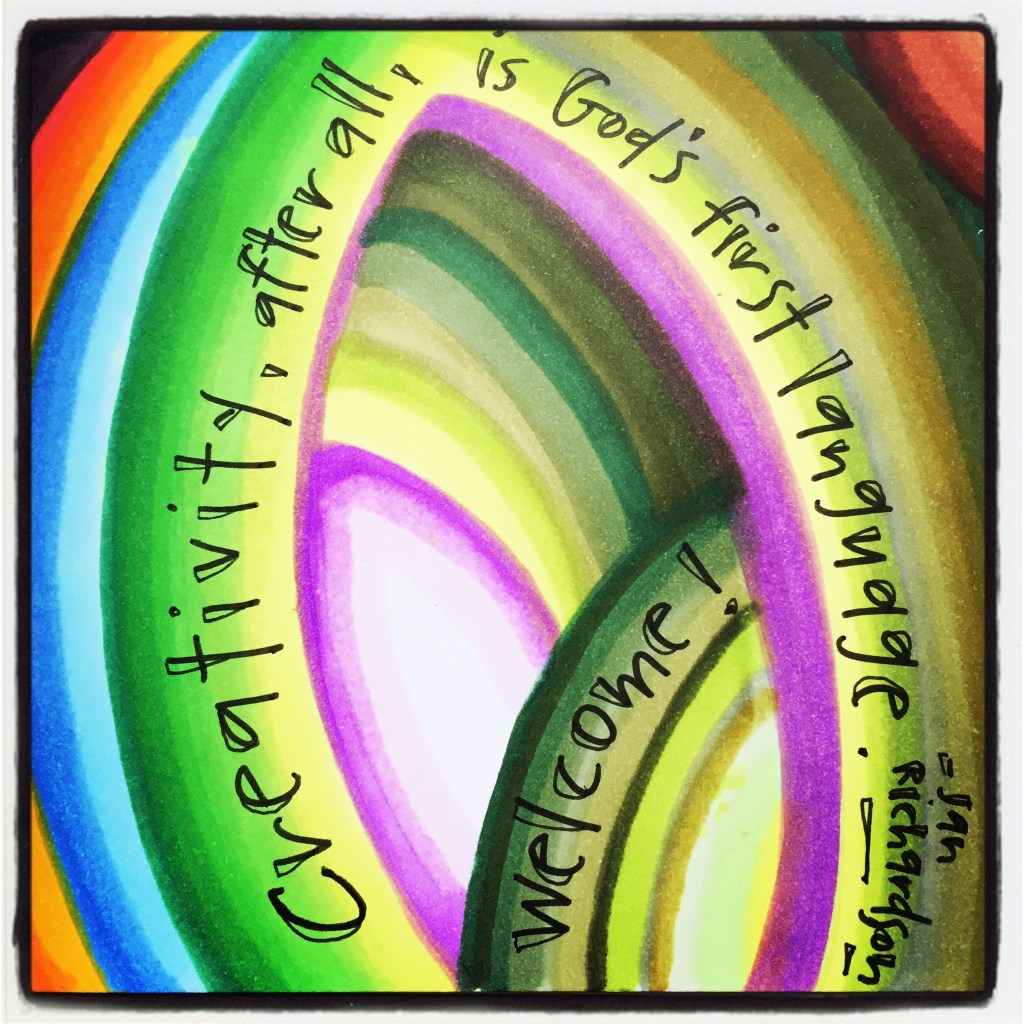 Creativity, after all, is God's first language.
— Jan Richardson —
Welcome!